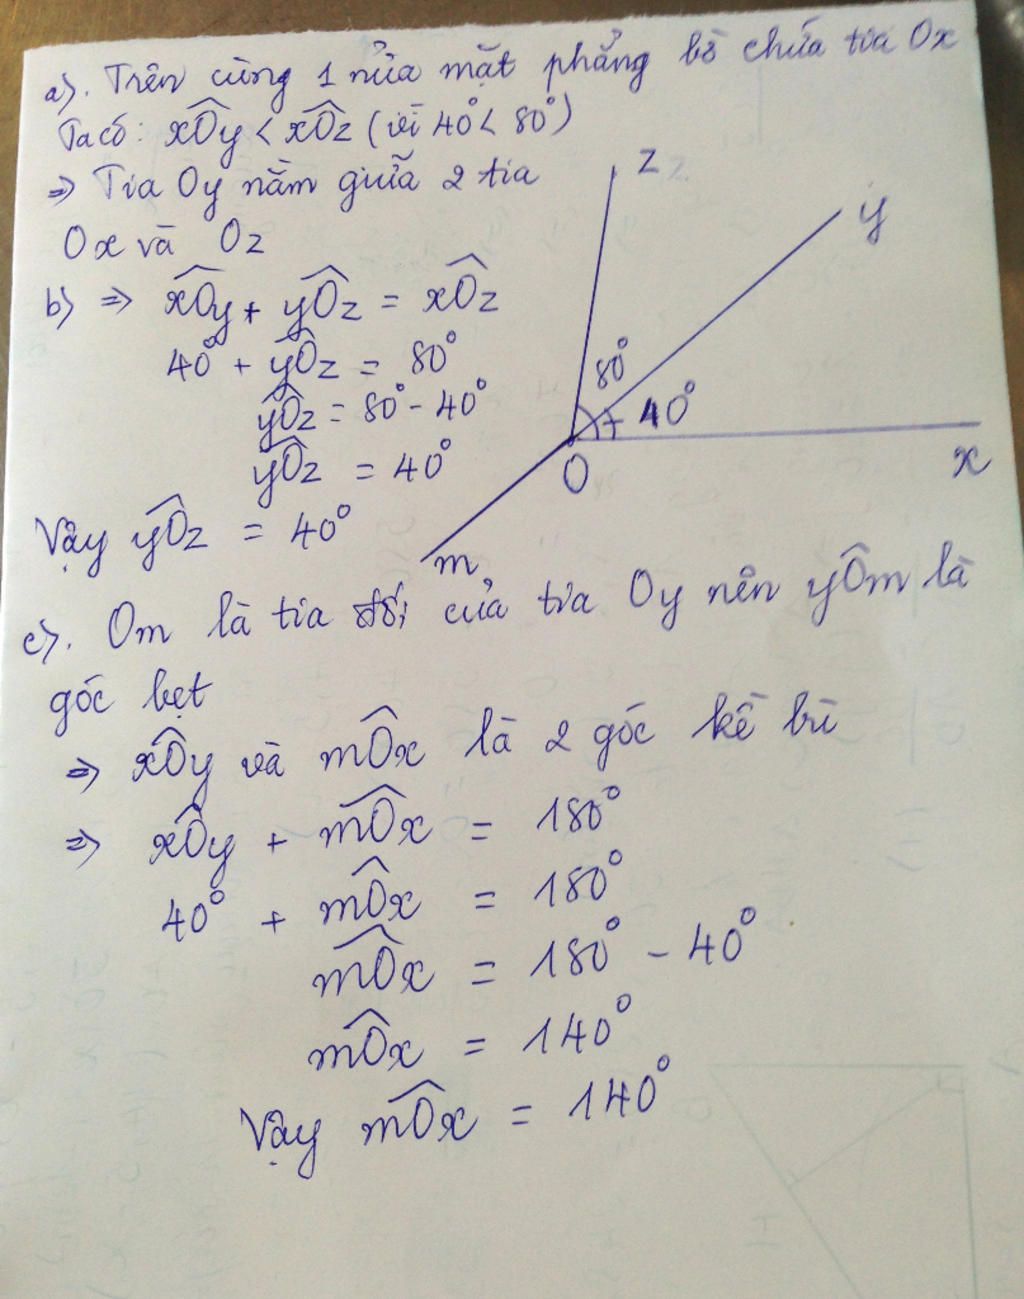 a). Trên cùng 1 nửa mặt phẳng bờ chứa tia Ox
Ta có: xOy < xOz (vì 40° < 80°)
=> Tia Oy nằm giữa 2 tia
Ox và Oz
b) => xOy + yOz = xOz
40° + yOz = 80°
yOz = 80° - 40°
yOz = 40°
Vậy yOz = 40°
z
y
80°
40°
x
O
m
c). Om là tia đối của tia Oy nên yOm là
góc bẹt
=> xOy và mOx là 2 góc kề bù
=> xOy + mOx = 180°
40° + mOx = 180°
mOx = 180° - 40°
mOx = 140°
Vậy mOx = 140°